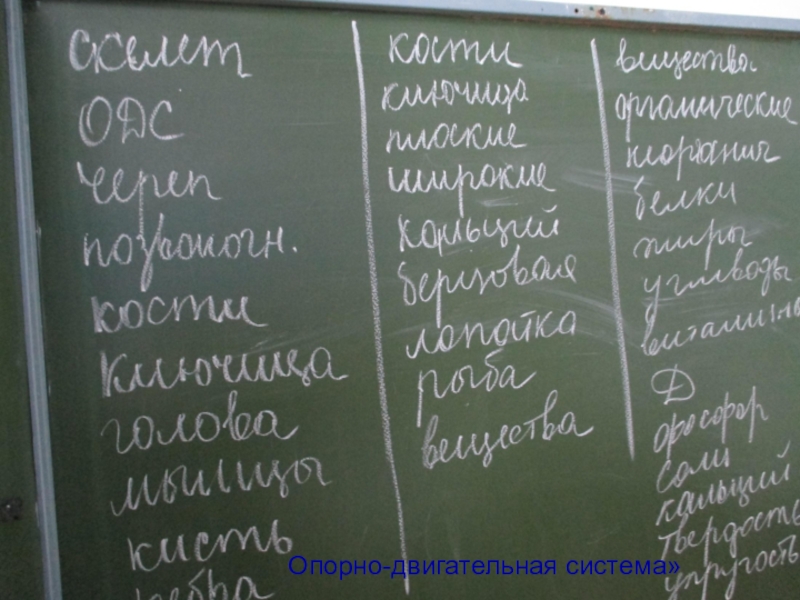 скелет
ОДС
череп
позвоночн.
кости
ключица
голова
мышцы
кисть
ребра
кости
ключица
плоские
широкие
кальций
берцовая
лопатка
рыба
вещества
вещества
органические
неорганич
белки
жиры
углеводы
витамины
Д
фосфор
соли
кальций
твердость
упругость
Опорно-двигательная система»